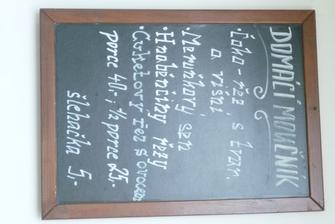 DOMÁCÍ MOUČNÍK
• Čoko - řez, s
a višní
• Meruňkový sen
• Hraběnčiny řezy
• Cuketový řez s ovocem
porce 40,-, ½ porce 25,-
šlehačka 5,-